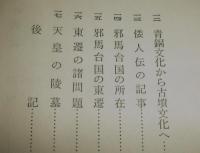 一二 青銅文化から古墳文化へ……
一三 倭人伝の記事……
一四 邪馬台国の所在……
一五 邪馬台国の東遷……
一六 東遷の諸問題……
一七 天皇の陵墓……
後記……